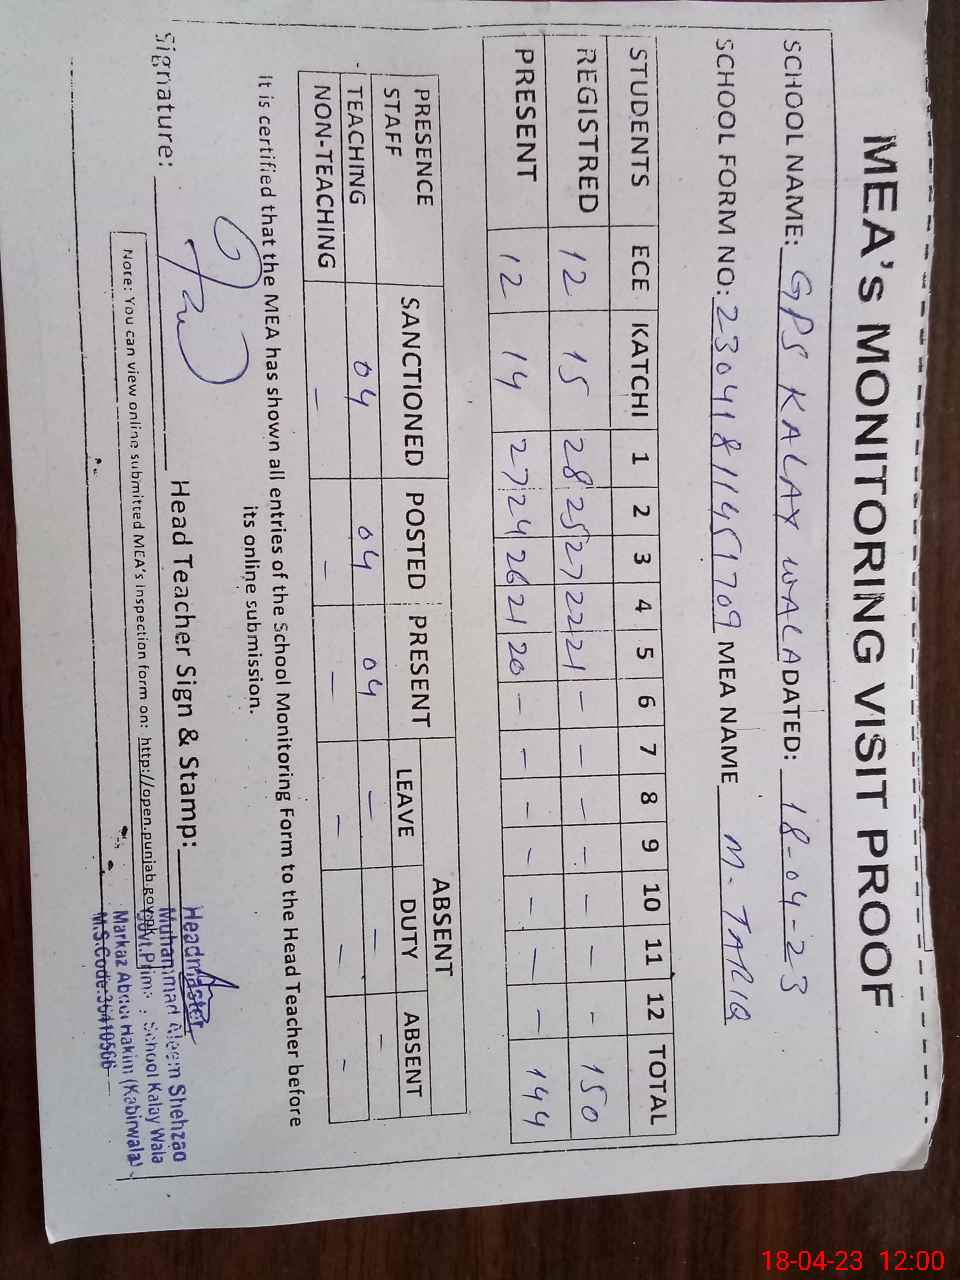 MEA's MONITORING VISIT PROOF
SCHOOL NAME: GPS KALAY WALA DATED: 18-04-23
SCHOOL FORM NO: MEA NAME M. TARIQ
STUDENTS ECE KATCHI 1 2 3 4 5 6 7 8 9 10 11 12 TOTAL
REGISTRED 12 15 28 25 27 22 21 - - - - - - - 150
PRESENT 12 14 27 24 26 21 20 - - - - - - - 144
PRESENCE STAFF SANCTIONED POSTED PRESENT ABSENT
LEAVE DUTY ABSENT
TEACHING 04 04 04 - - -
NON-TEACHING - - - - - -
It is certified that the MEA has shown all entries of the School Monitoring Form to the Head Teacher before
its online submission.
Signature: Head Teacher Sign & Stamp:
Headmaster
Muhammad Aleem Shehzad
Govt. Prima School Kalay Wala
Markaz Abdul Hakim (Kabirwala)
M.S.Code:
Note: You can view online submitted MEA's inspection form on: http://open.punjab.gov.pk
18-04-23 12:00